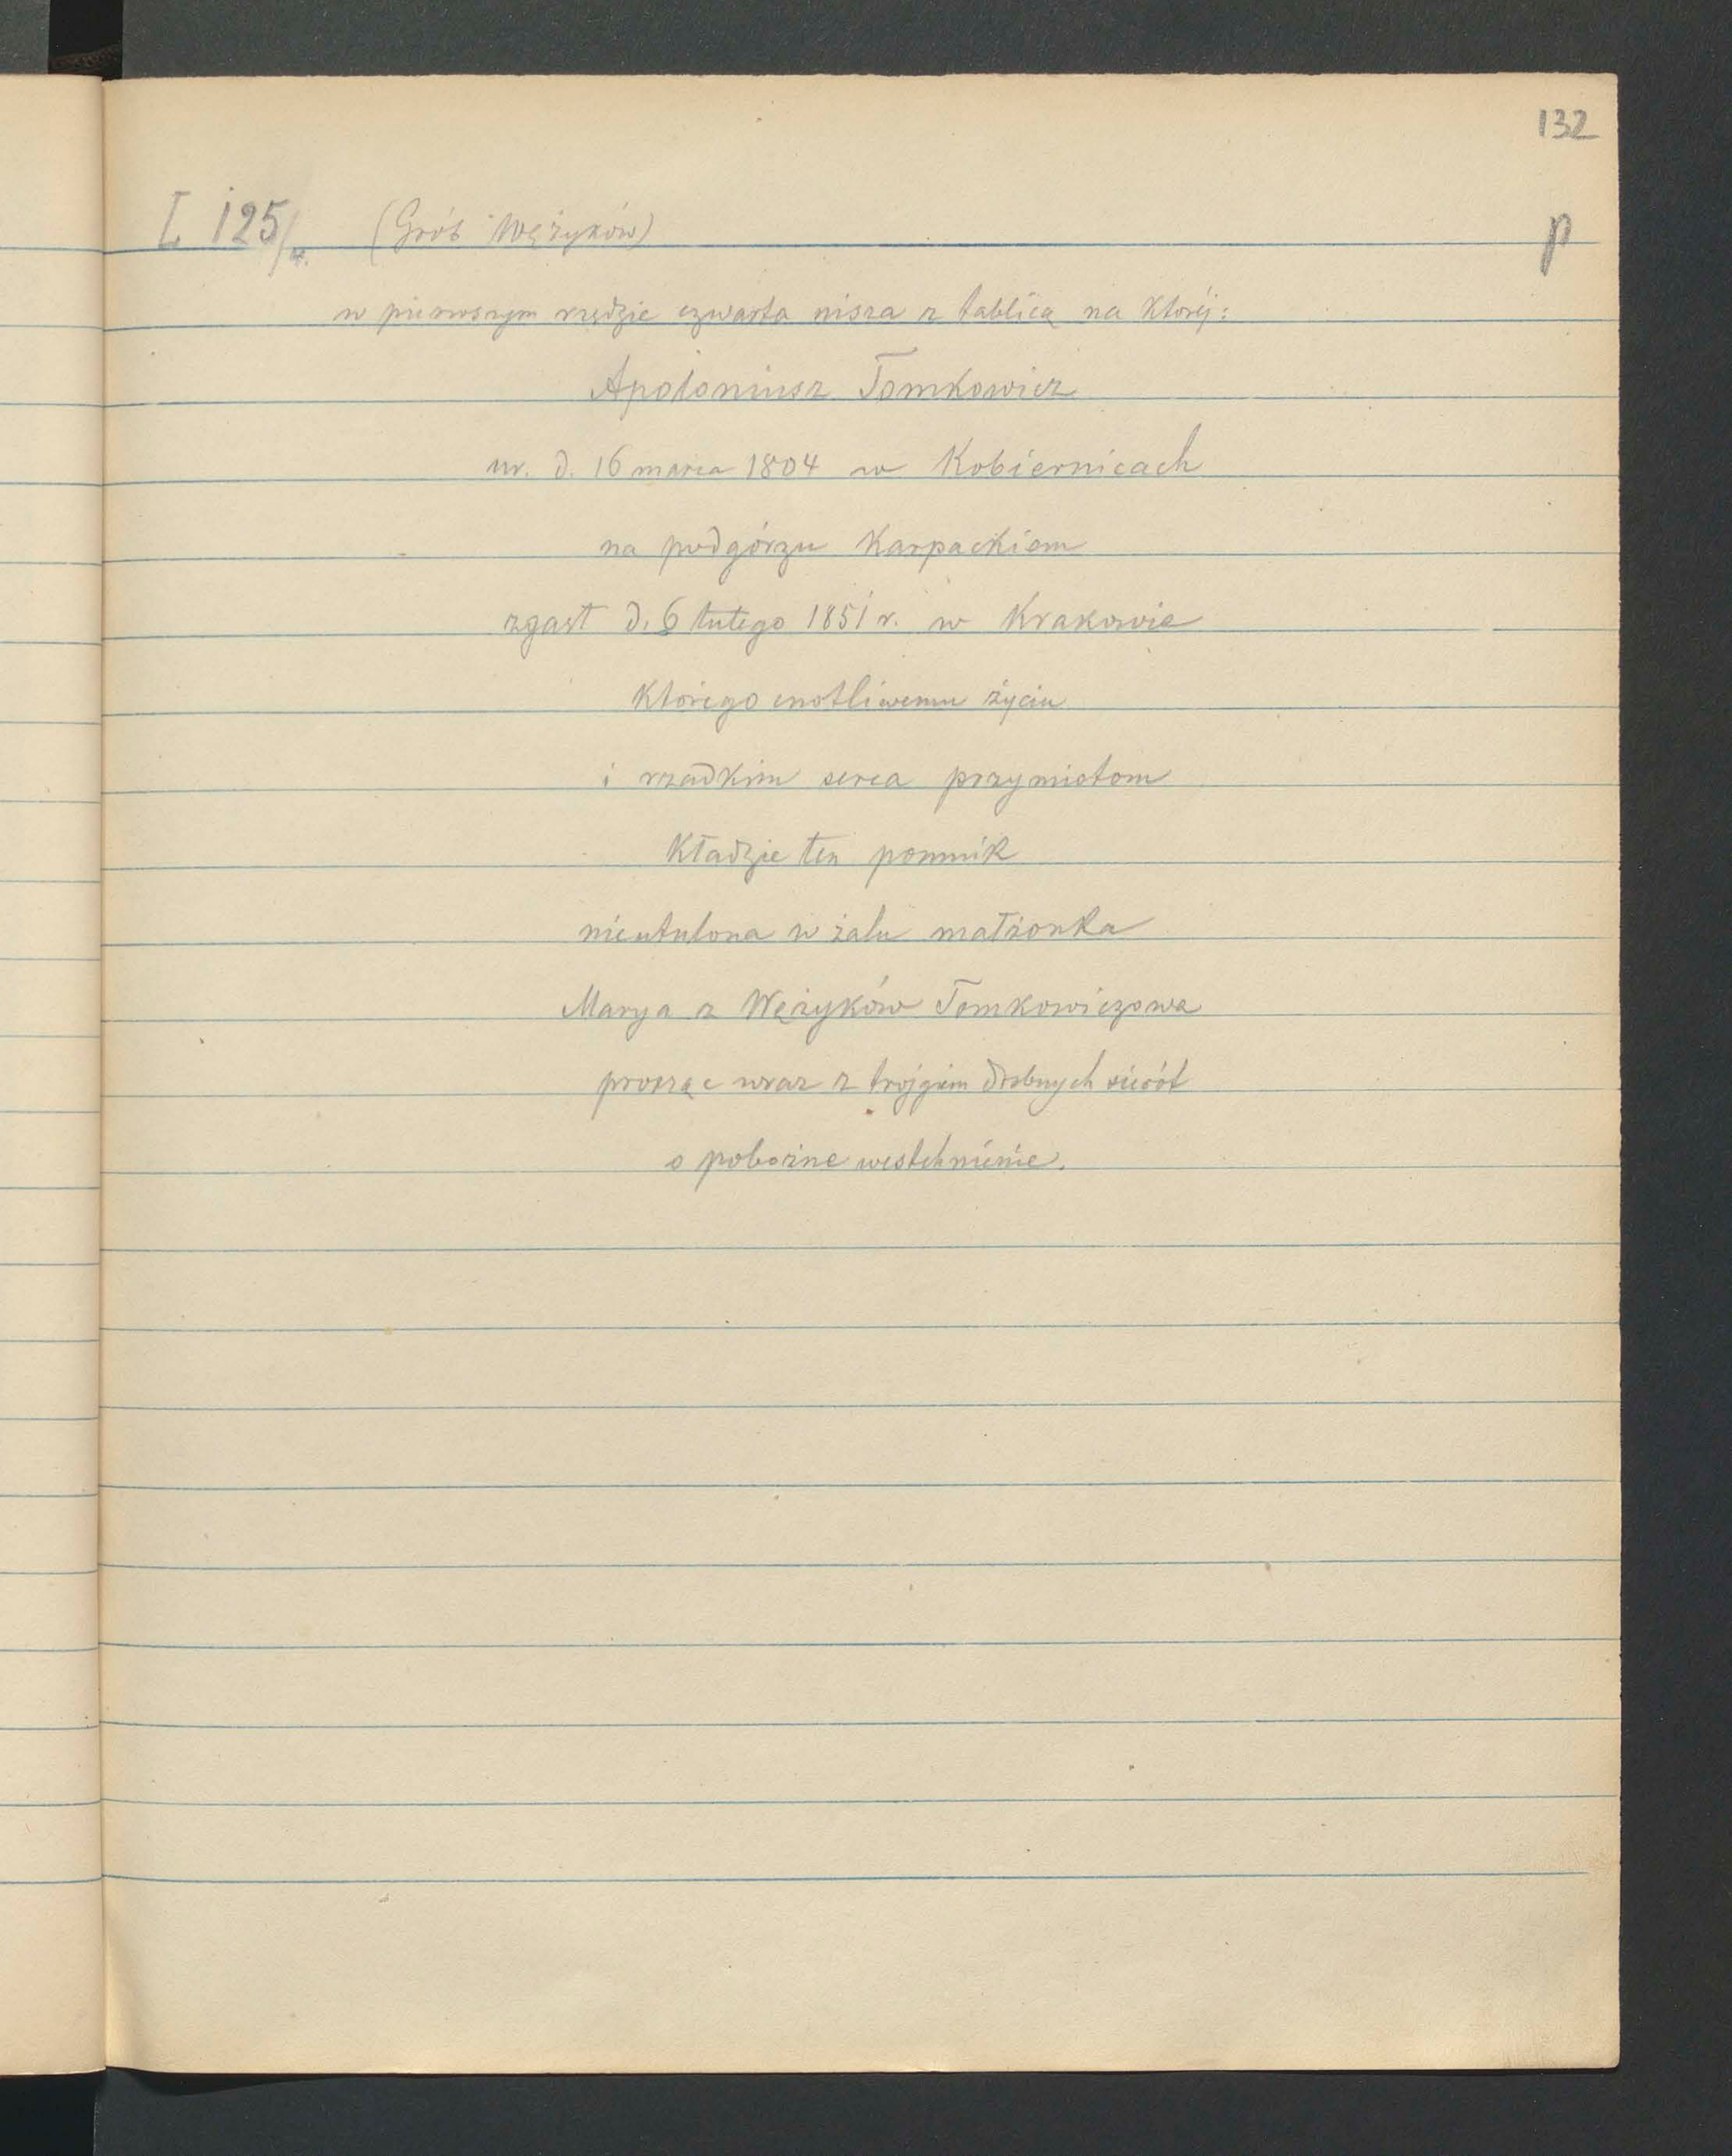 132
L 125/4. (Grób Wężyków) p
w pierwszym rzędzie czwarta nisza z tablicą na której:
Apoloniusz Tomkowicz
ur. d. 16 marca 1804 w Kobiernicach
na podgórzu Karpackiem
zgasł d. 6 lutego 1851 r. w Krakowie
którego cnotliwemu życiu
i rzadkim serca przymiotom
kładzie ten pomnik
nieutulona w żalu małżonka
Marya z Wężyków Tomkowiczowa
prosząc wraz z trojgiem drobnych sierót
o pobożne westchnienie.